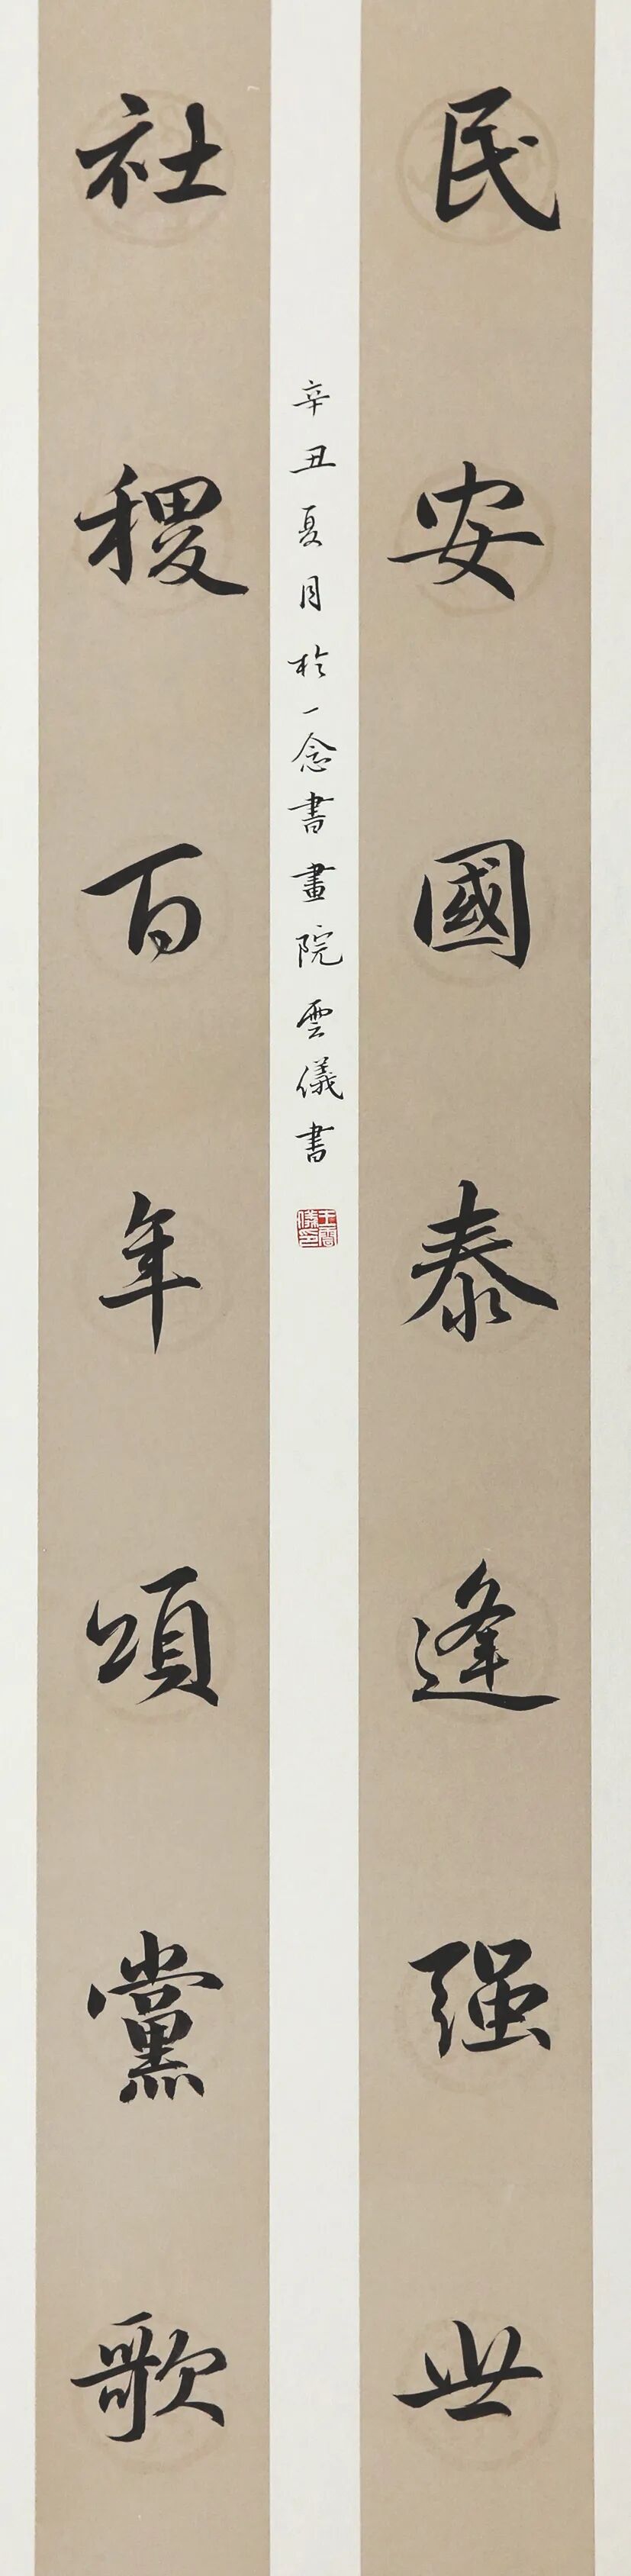 民安國泰逢强世
辛丑夏月於一念書畫院雲儀書
王雲儀印
社稷百年頌黨歌